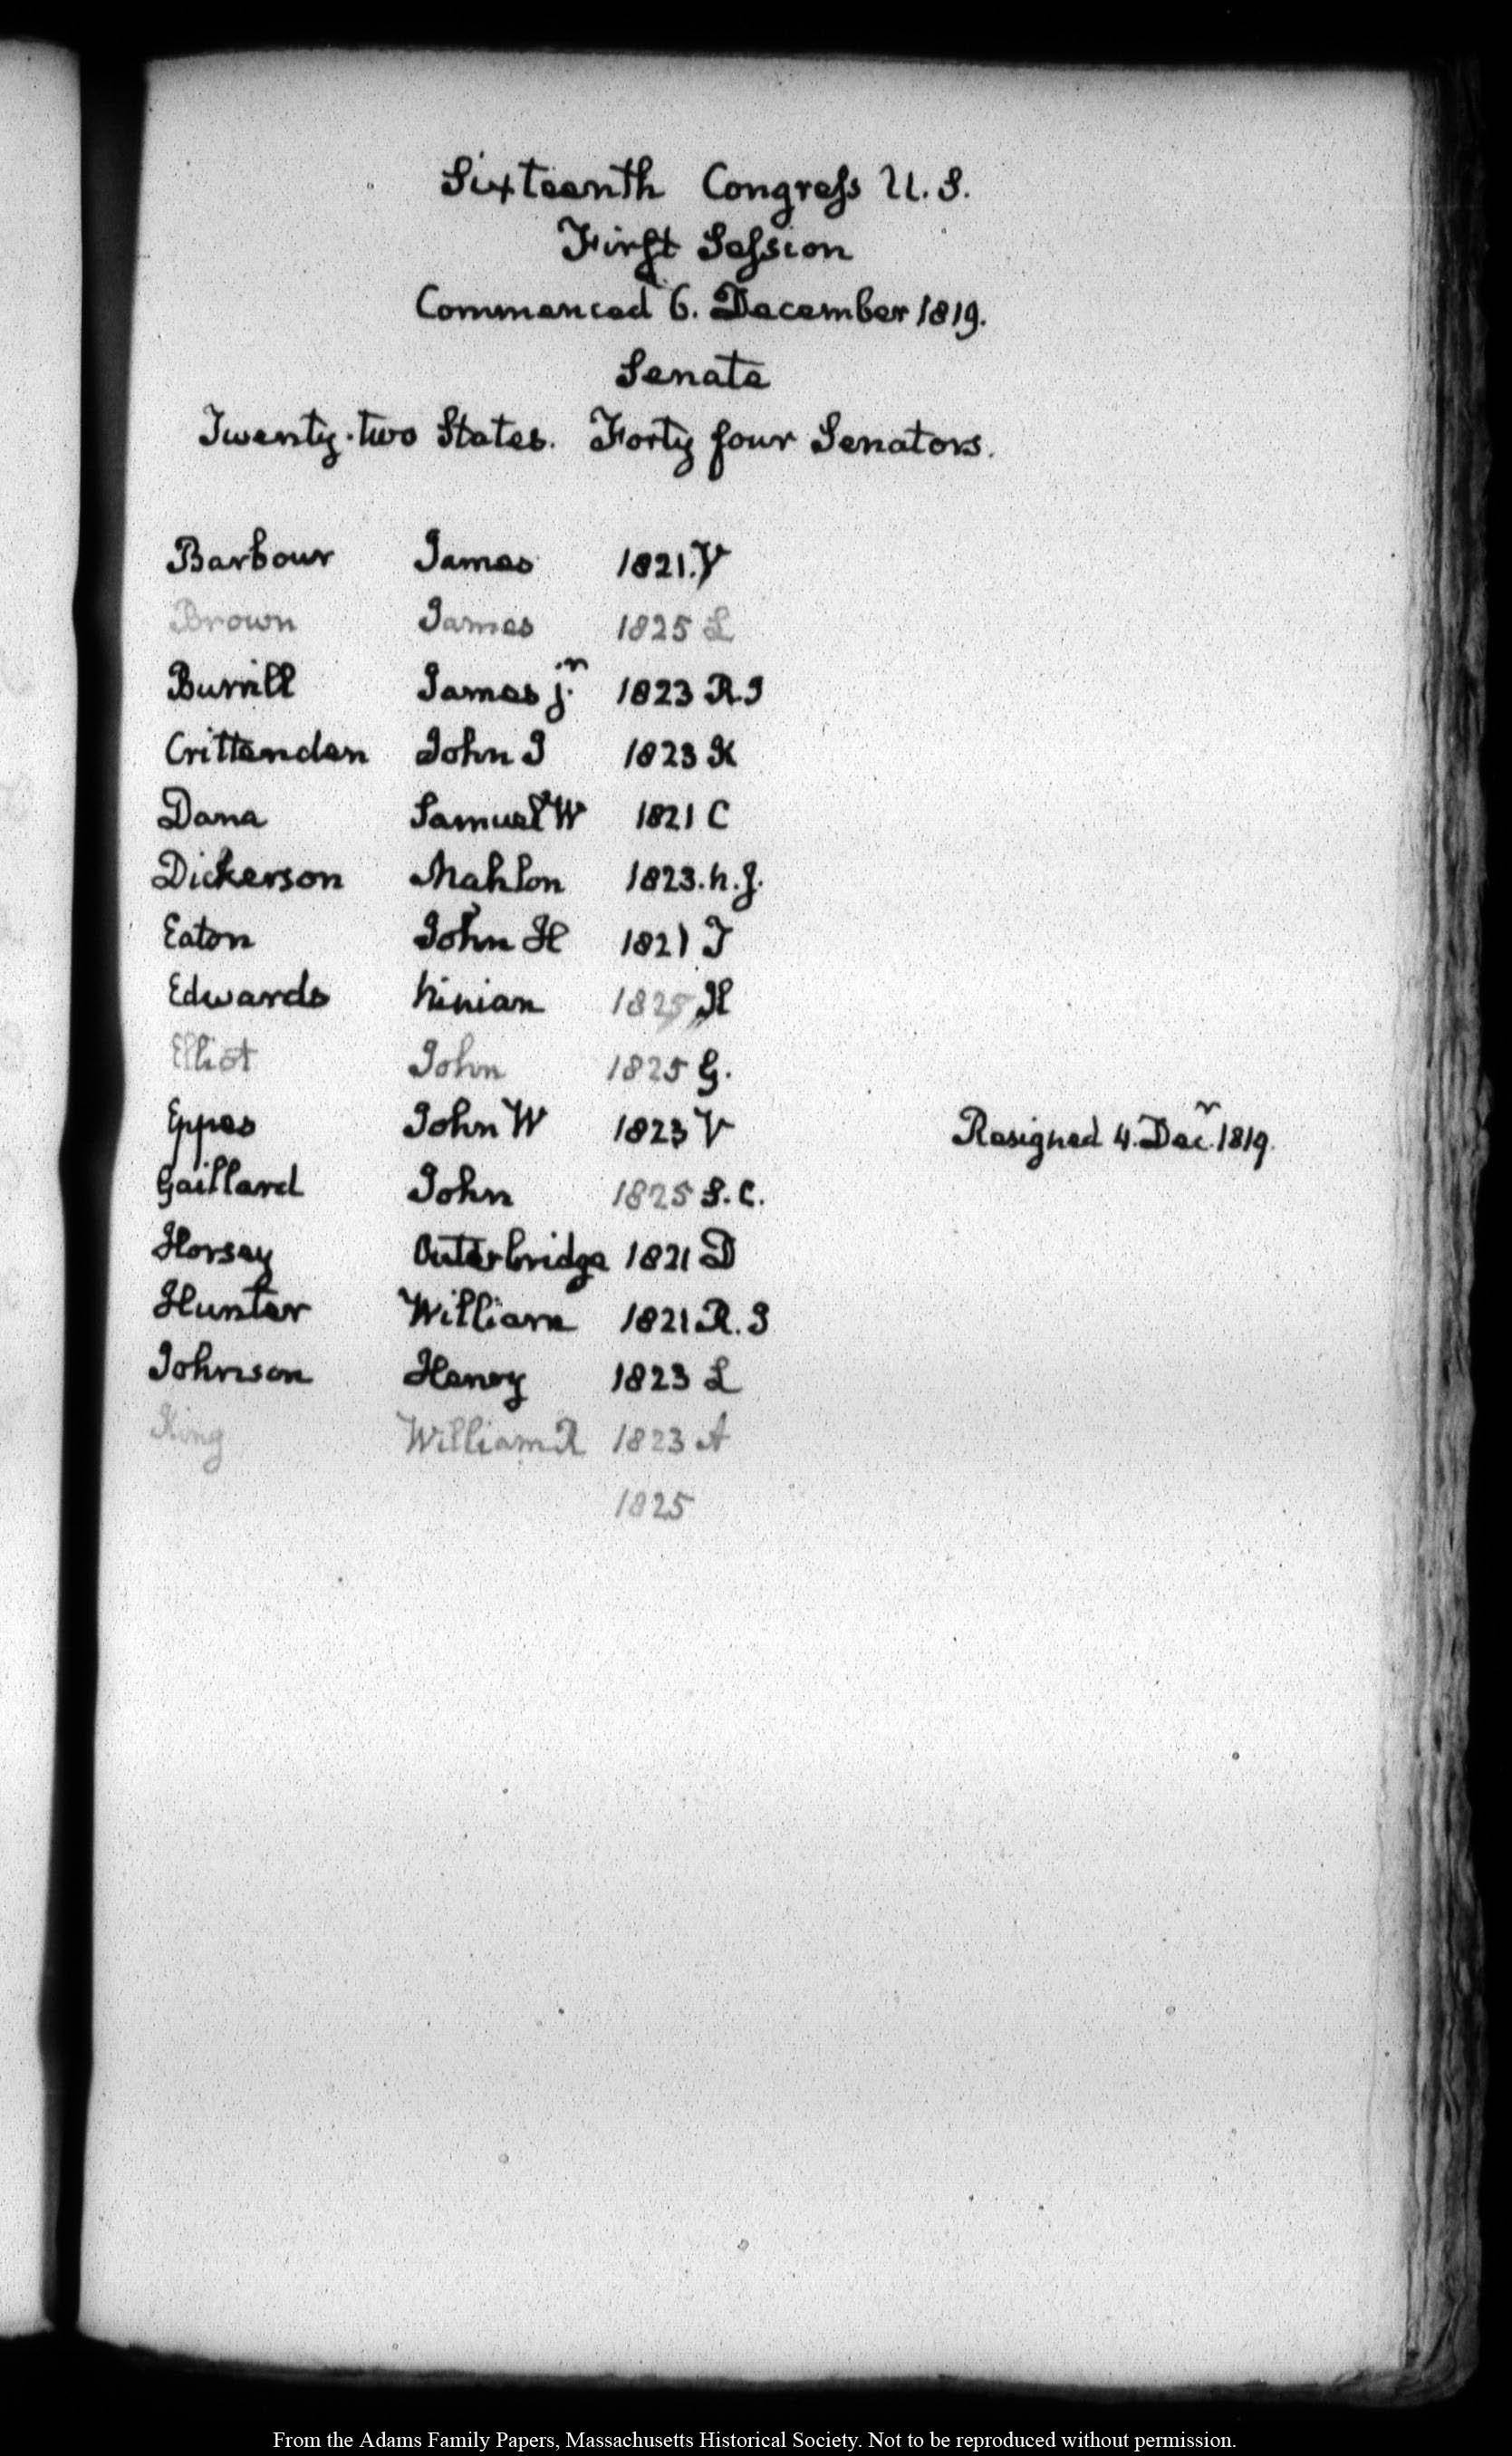 Sixteenth Congress U.S.
First Session
Commenced 6. December 1819.
Senate
Twenty-two States. Forty four Senators.
Barbour James 1821. V
Brown James 1825 L
Burrill James jr. 1823 R.I
Crittenden John J 1823 K
Dana Samuel W 1821 C
Dickerson Mahlon 1823. N.J.
Eaton John H 1821 T
Edwards Ninian 1825 Il
Elliot John 1825 G.
Eppes John W 1823 V Resigned 4. Decr. 1819.
Gaillard John 1825 S.C.
Horsey Outerbridge 1821 D
Hunter William 1821 R.I
Johnson Henry 1823 L
King William R 1823 A
1825
From the Adams Family Papers, Massachusetts Historical Society. Not to be reproduced without permission.